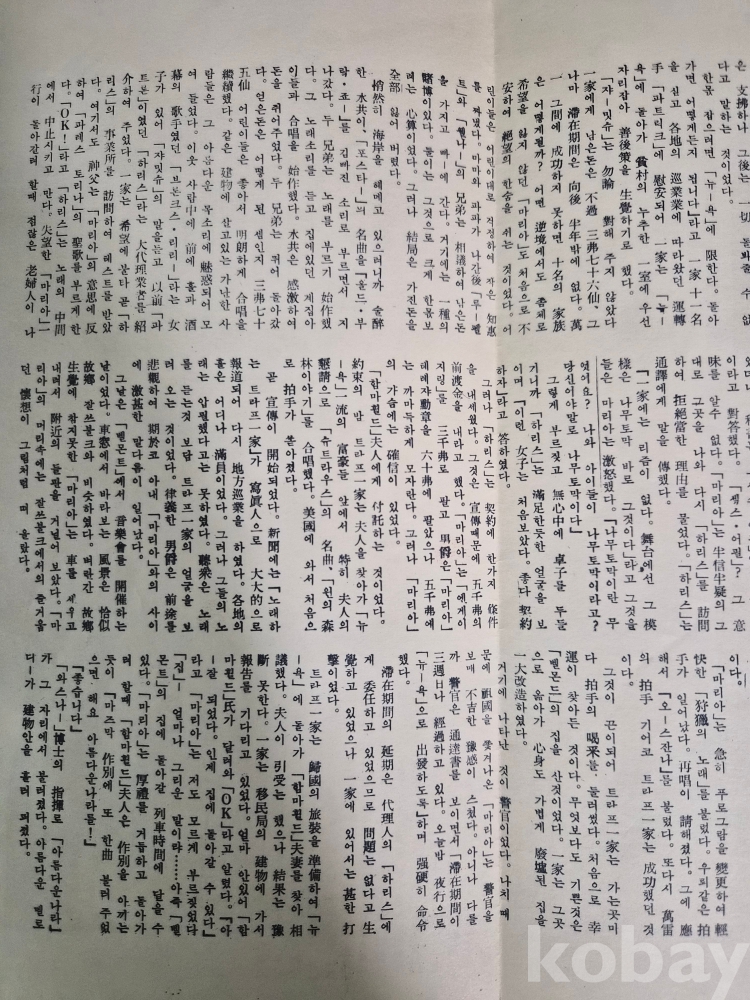 은 支拂하나 그後는 一切 돌봐줄 수 없
다고 말하는 것이었다。
한몫 잡으려면 「뉴―욕」에 限한다。돌아
가면 어떻게든지 됩니다」라고 一家 十一名
을 싣고 各地의 巡業에 따라왔던 運轉
手 「파트리크」에 慰安되어 一家는 「뉴―
욕」에 돌아가 貧村의 누추한 一室에 우선
자리잡아 善後策을 生覺하기로 했다。
「쟈―밋슈」는 勿論 對해 주지 않았다
一家에게 남은돈은 不過 三弗七十六仙、그
나마 滯在期間은 向後 半年밖에 없다。萬
一 그間에 成功하지 못하면 十名의 家族
은 어떻게될까? 어떤 逆境에서도 좀체로
希望을 잃지 않던 「마리아」도 처음으로 不
安하여 絶望의 한숨을 쉬는 것이었다。어
린이들은 어린이대로 걱정하여 작은 知惠
를 짜냈다。마마와 파파가 나간後 「루―펠
트」와 「웰나―」의 兄弟는 相議하여 남은돈
을 가지고 빠―에 간다。거기에는 一種의
賭博이있다。둘이는 그것으로 크게 한몫보
려는 心算이었다。그러나 結局은 가진돈을
全部 잃어 버렸다。
悄然히 海岸을 헤매고 있으려니까 술醉
한 水兵이 「포스타―」의 名曲을 「올드・부
락・죠―」를 김빠진 소리로 부르면서 지
나갔다。두 兄弟는 노래를 부르기 始作했
다。그 노래소리를 듣고 집에있던 계집아
이들과 合唱을 始作했다。水兵은 感激하여
돈을 쥐어주었다。두 兄弟는 뛰어 돌아갔
다。얻은돈은 어떻게 된 셈인지 三弗七十
五仙 어린이들은 좋아서 明朗하게 合唱을
繼續했다。같은 建物에 살고있는 가난한 사
람들은 그 아름다운 목소리에 魅惑되어 모
여 들었다。이웃 사람中에 前에 홀과 酒
幕의 歌手였던 「브론크스・리리―」라는 女
子가 있어 「쟈밋슈」의 말을듣고 以前 「파
트론」이였던 「하리스」라는 大代理業者를 紹
介하여 주었다。一家는 希望에 불타 곧 「하
리스」의 事業所를 訪問하여 테스트를 받았
다。여기서도 神父는 「마리아」의 意思에 反
하여 「파레스토리나」의 聖歌를 부르게 하였
다。「OK!」라고 「하리스」는 노래의 中間
에서 中止시키고 만다。失望한 「마리아」一
行이 돌아갈려 할때 점잖은 老婦人이 나
이라고 對答했다。「쎅스・어필」? 그 意
味를 알수 없다。「마리아」는 半信半疑의 그
대로 그곳을 나와 다시 「하리스」를 訪問
하여 拒絶當한 理由를 물었다。「하리스」는
通譯에게 말을 傳했다。
『一家에는 리즘이 없다。舞台에선 그 模
樣은 나무토막 바로 그것이다』라고 그것을
들은 마리아는 激怒했다。『나무토막이란 무
엇이요? 나와 아이들이 나무토막이라고?
당신이야말로 나무토막이다』
그렇게 부르짖고 無心中에 卓子를 두들
기니까 「하리스」는 滿足한듯한 얼굴을 보
이며 「이런 女子는 처음보았다。좋다 契約
하자」라고 答하였다。
그러나 「하리스」는 契約에 한가지 條件
을 내세웠다。그것은 宣傳때문에 五千弗의
前渡金을 내라고 했다。「마리아」는 「에게이
지링」을 三千弗로 팔고 男爵은 「마리아」
테레쟈勳章을 六十弗에 팔았으나 五千弗에
는 까마득하게 모자란다。그러나 「마리아」
의 가슴에는 確信이 있었다。
「함마휠드」夫人에게 付託하는 것이었다。
約束의 밤 트라프一家는 夫人을 찾아가 「뉴
―욕」一流의 富豪들 앞에서 特히 夫人의
懇請으로 「슈트라우스」의 名曲、「윈의 森
林이야기」를 合唱했다。美國에 와서 처음으
로 拍手가 쏟아졌다。
곧 宣傳이 開始되었다。新聞에는 「노래하
는 트라프一家」가 寫眞入으로 大大的으로
報道되어 다시 地方巡業을 하였다。各地의
홀은 어디나 滿員이었다。그러나 그들의 노
래는 알맺했다고는 못하였다。聽衆은 노래
를 듣는것 보담 트라프一家의 얼굴을 보
러 오는 것이었다。律義한 男爵은 前途를
悲觀하여 期於코 아내 「마리아」와의 사이
에 激甚한 말다툼이 일어났다。
그날은 「벨몬트」에서 音樂會를 開催하는
날이었다。車窓에서 바라보는 風景은 恰似
故鄕 잘쓰불크와 비슷하였다。버란간 故鄕
生覺에 참지못한 「마리아」는 車를 세우고
내려서 附近의 들판을 거닐어 보았다。「마
리아」의 머리속에는 잘쓰불크에서의 즐거움
던 懷想이 그림처럼 떠 올랐다。
이다。
「마리아」는 急히 푸로그람을 變更하여 輕
快한 「狩獵의 노래」를 불렀다。우뢰같은 拍
手가 일어났다。再唱이 請해졌다。그에 應
해서 「오―스잔나」를 불렀다。또다시 萬雷
의 拍手 기어코 트라프一家는 成功했던 것
이다。
그것이 끈이되어 트라프一家는 가는곳마
다 拍手의 喝采를 둘러썼다。처음으로 幸
運이 찾아든 것이다。무엇보다도 기쁜것은
「벨몬드」의 집을 산것이었다。一家는 그곳
으로 옮아가 心身도 가볍게 廢墟된 집을
一大改造하였다。
거기에 나타난 것이 警官이었다。나치 때
문에 祖國을 쫓겨나온 「마리아」는 警官을
보매 不吉한 豫感이 스쳤다。아니나 다를
까 警官은 通達書를 보이면서 「滯在期間이
三週日나 經過하고 있다。오늘밤 夜行으로
「뉴―욕」으로 出發하도록」하며 强硬히 命令
했다。
滯在期間의 延期은 代理人의 「하리스」에
게 委任하고 있었으므로 問題은 없다고 生
覺하고 있었으나 一家에 있어서는 甚한 打
擊이었다。
트라프一家는 歸國의 旅裝을 準備하여 「뉴
―욕」에 돌아가 「함마휠드」夫妻를 찾아 相
議했다。夫人이 引受는 했으나 結果는 豫
斷 못한다。一家는 移民局의 建物에 가서
報告를 기다리고 있었다。얼마 안있어 「함
마휠드」氏가 달려와 「OK」라고 알렸다。『아
―잘 되었다。인제 집에 돌아갈 수 있다』
라고 「마리아」는 저도 모르게 부르짖었다
「집」― 얼마나 그리운 말이랴……아죽 「벨
몬트」의 집에 돌아갈 列車時間에 닿을 수
있다。「마리아」는 厚禮를 거듭하고 돌아가
려 할때 「함마휠드」夫人은 作別을 아끼는
듯이 「마즈막 作別에 또 한曲 불러 주었
으면、해요 아름다운나라를!」
『좋습니다』
「와스나―」博士의 指揮로 「아름다운나라」
가 그 자리에서 불려졌다。아름다운 멜로
디―가 建物안을 흘러 퍼졌다。
kobay